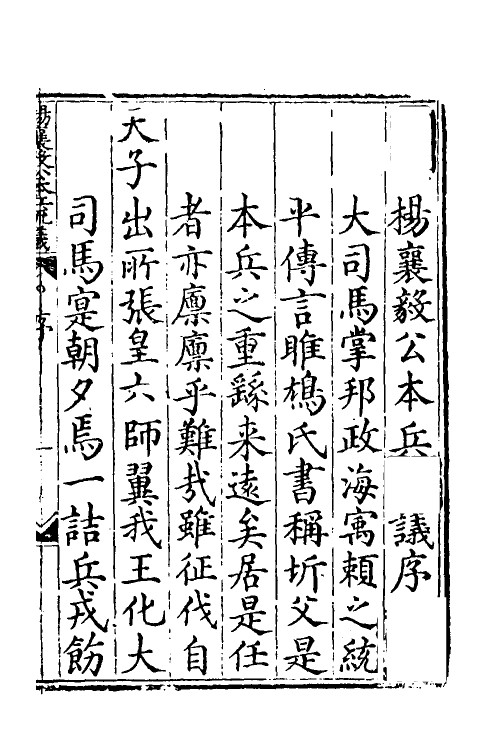 楊襄毅公本兵 議序
大司馬掌邦政海寓頼之統
平傳言雎鳩氏書稱圻父是
本兵之重繇来遠矣居是任
者亦廪廪乎難㢤雖征伐自
天子出所張皇六師翼我王化大
司馬寔朝夕焉一詰兵戎飭
楊襄毅公本兵疏議
序